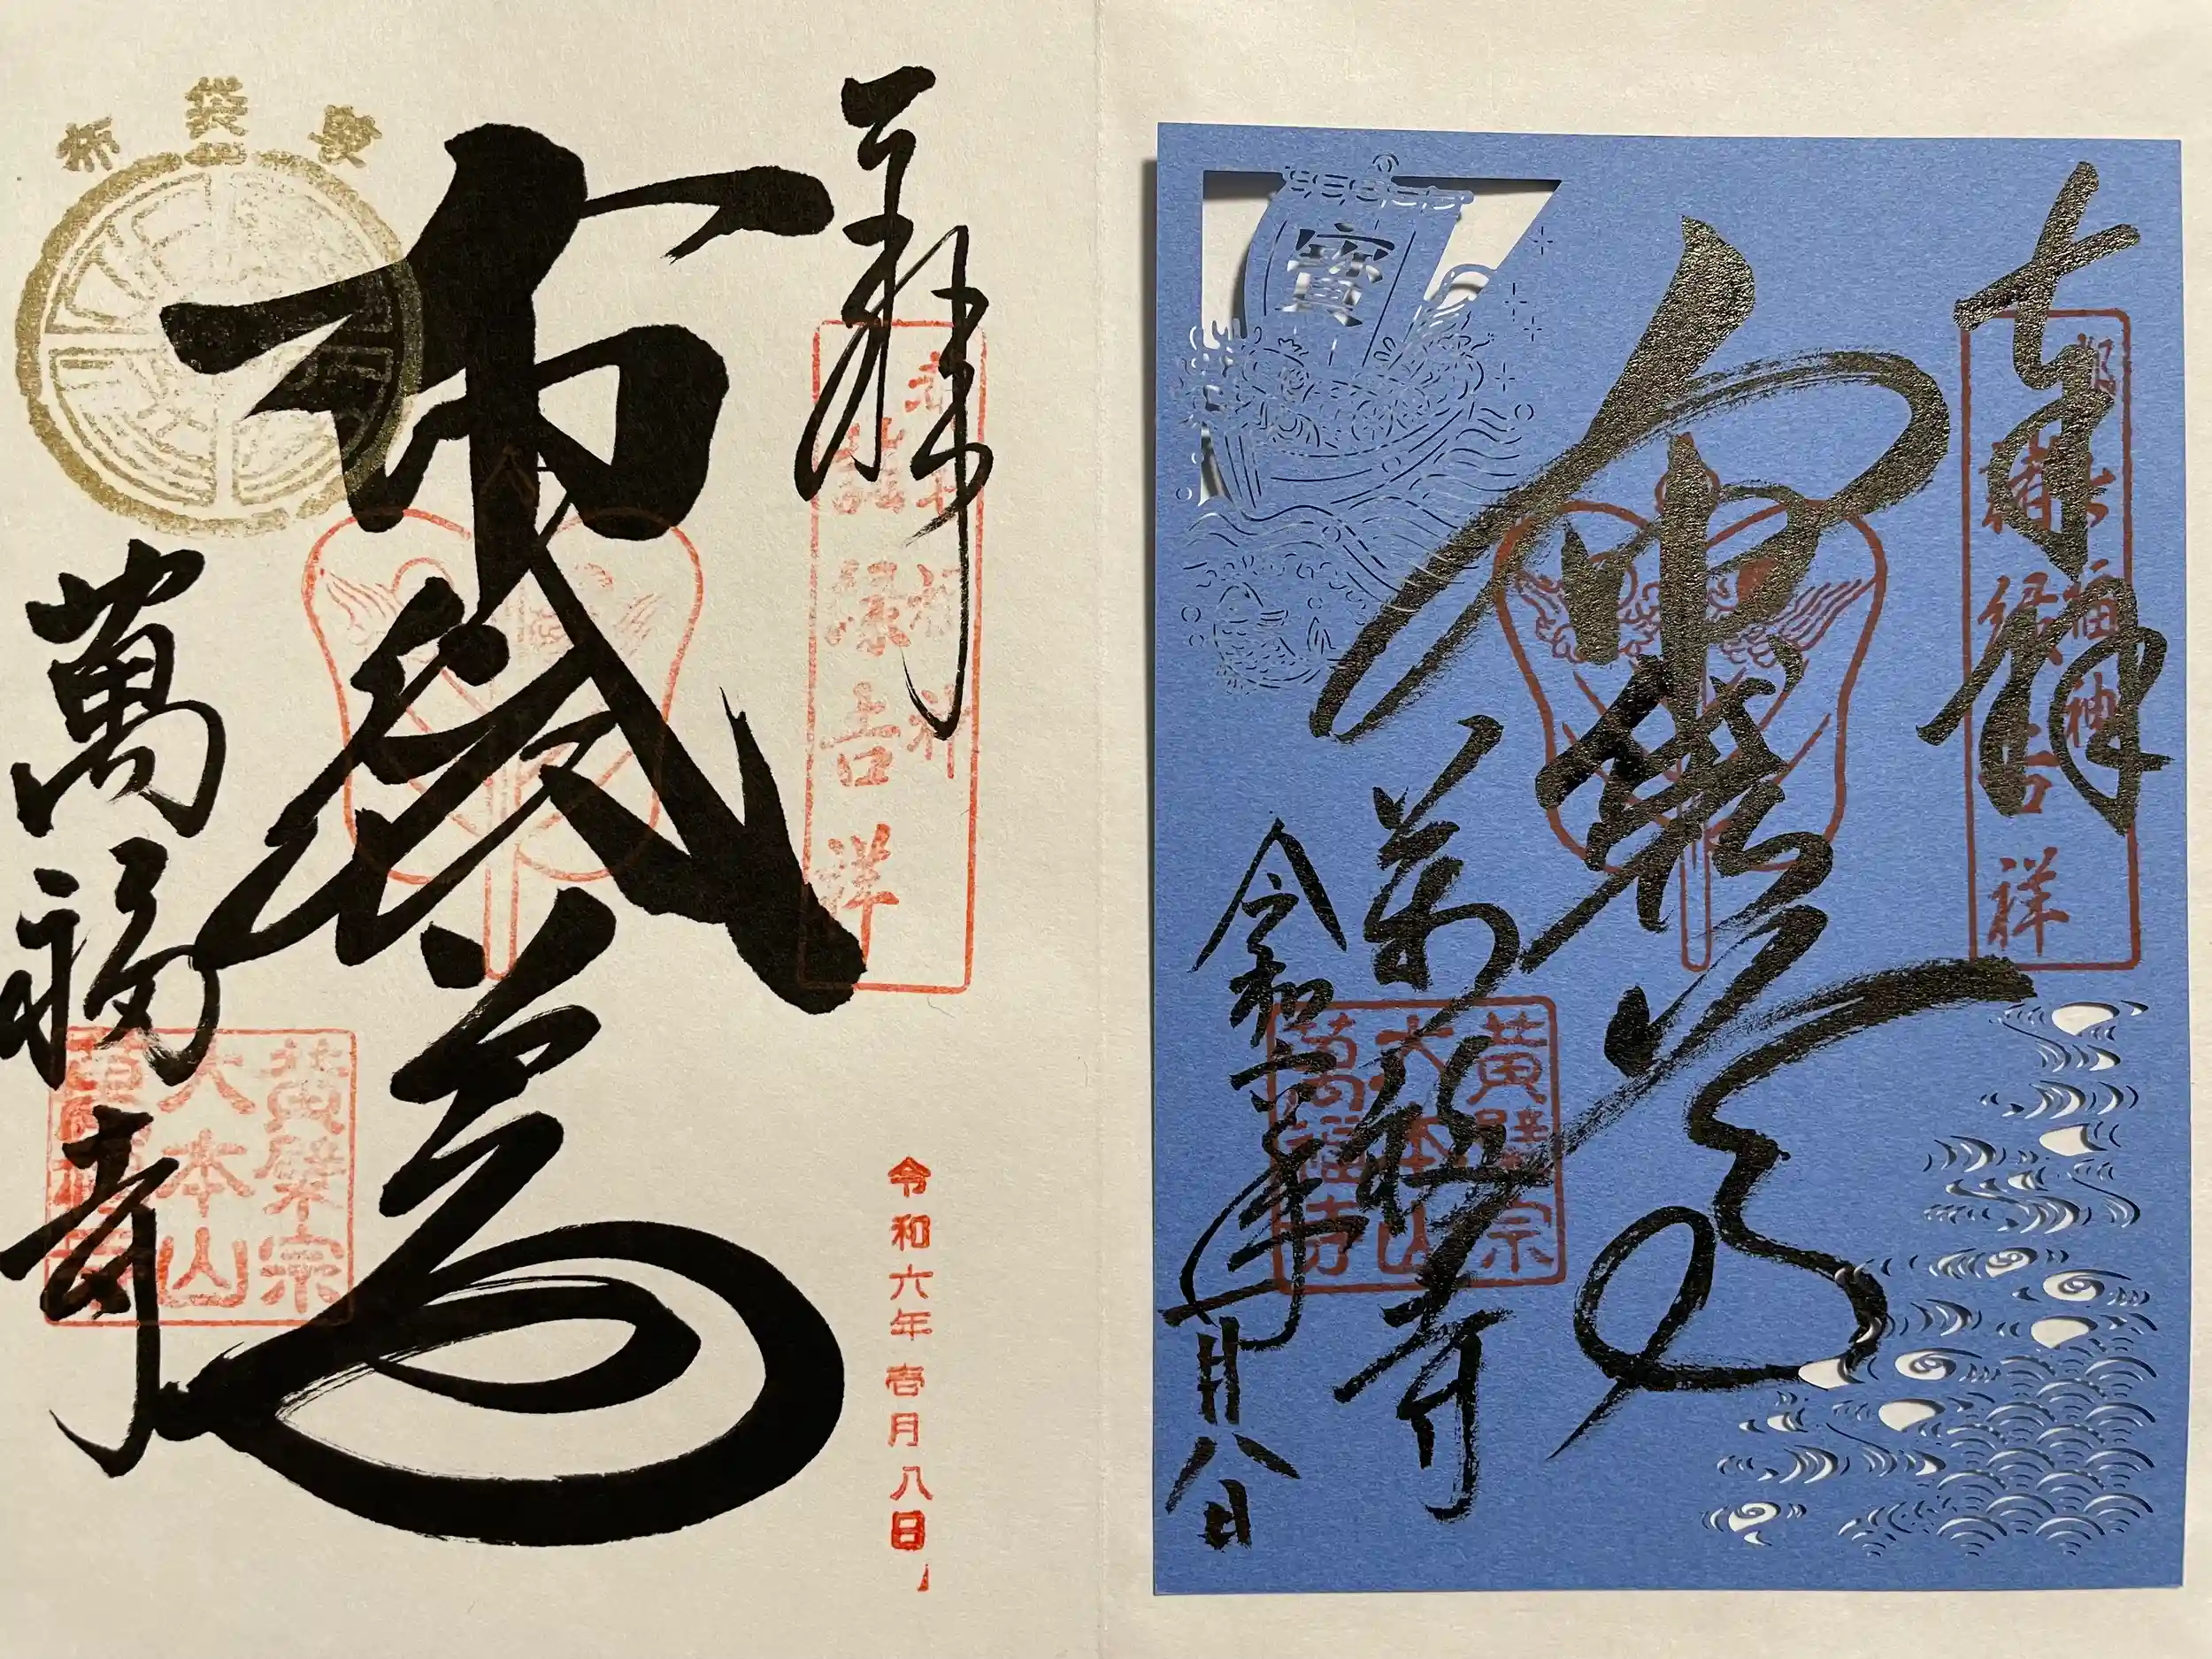 奉拝
都七福神
諸縁吉祥
布袋尊
寶
萬福寺
黄檗宗
大本山
萬福寺
令和六年一月八日
奉拝
都七福神
諸縁吉祥
令和六年壱月八日
布袋尊
布袋
萬福寺
黄檗宗
大本山
萬福寺